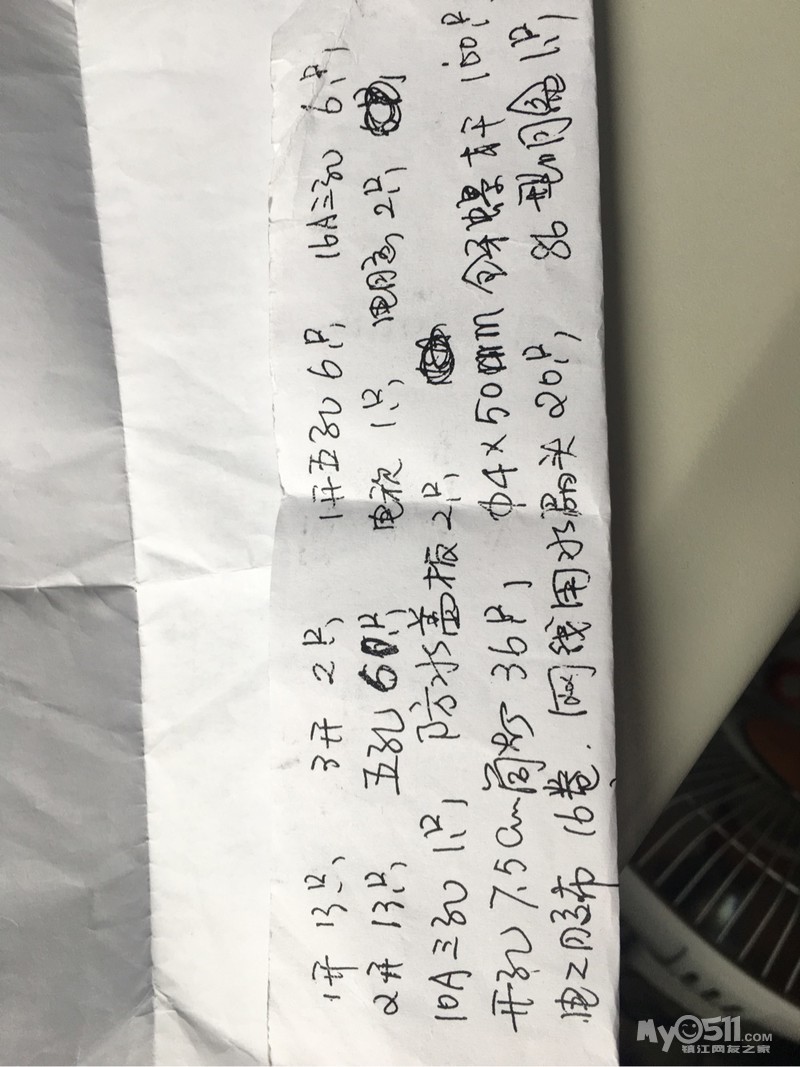 1开 13只, 3开 2只, 1开五孔 6只, 16A三孔 6只,
2开 13只, 五孔 60只, 电视 1只, 电脑 2只,
10A三孔 1只, 防水盖板 2只,
开孔 7.5cm 筒灯 36只, Φ4×50mm 自攻螺丝干 100只
电工胶布 16卷. 网线用水晶头 20只, 86型门铃 1只,
MyO511.COM
镇江网友之家